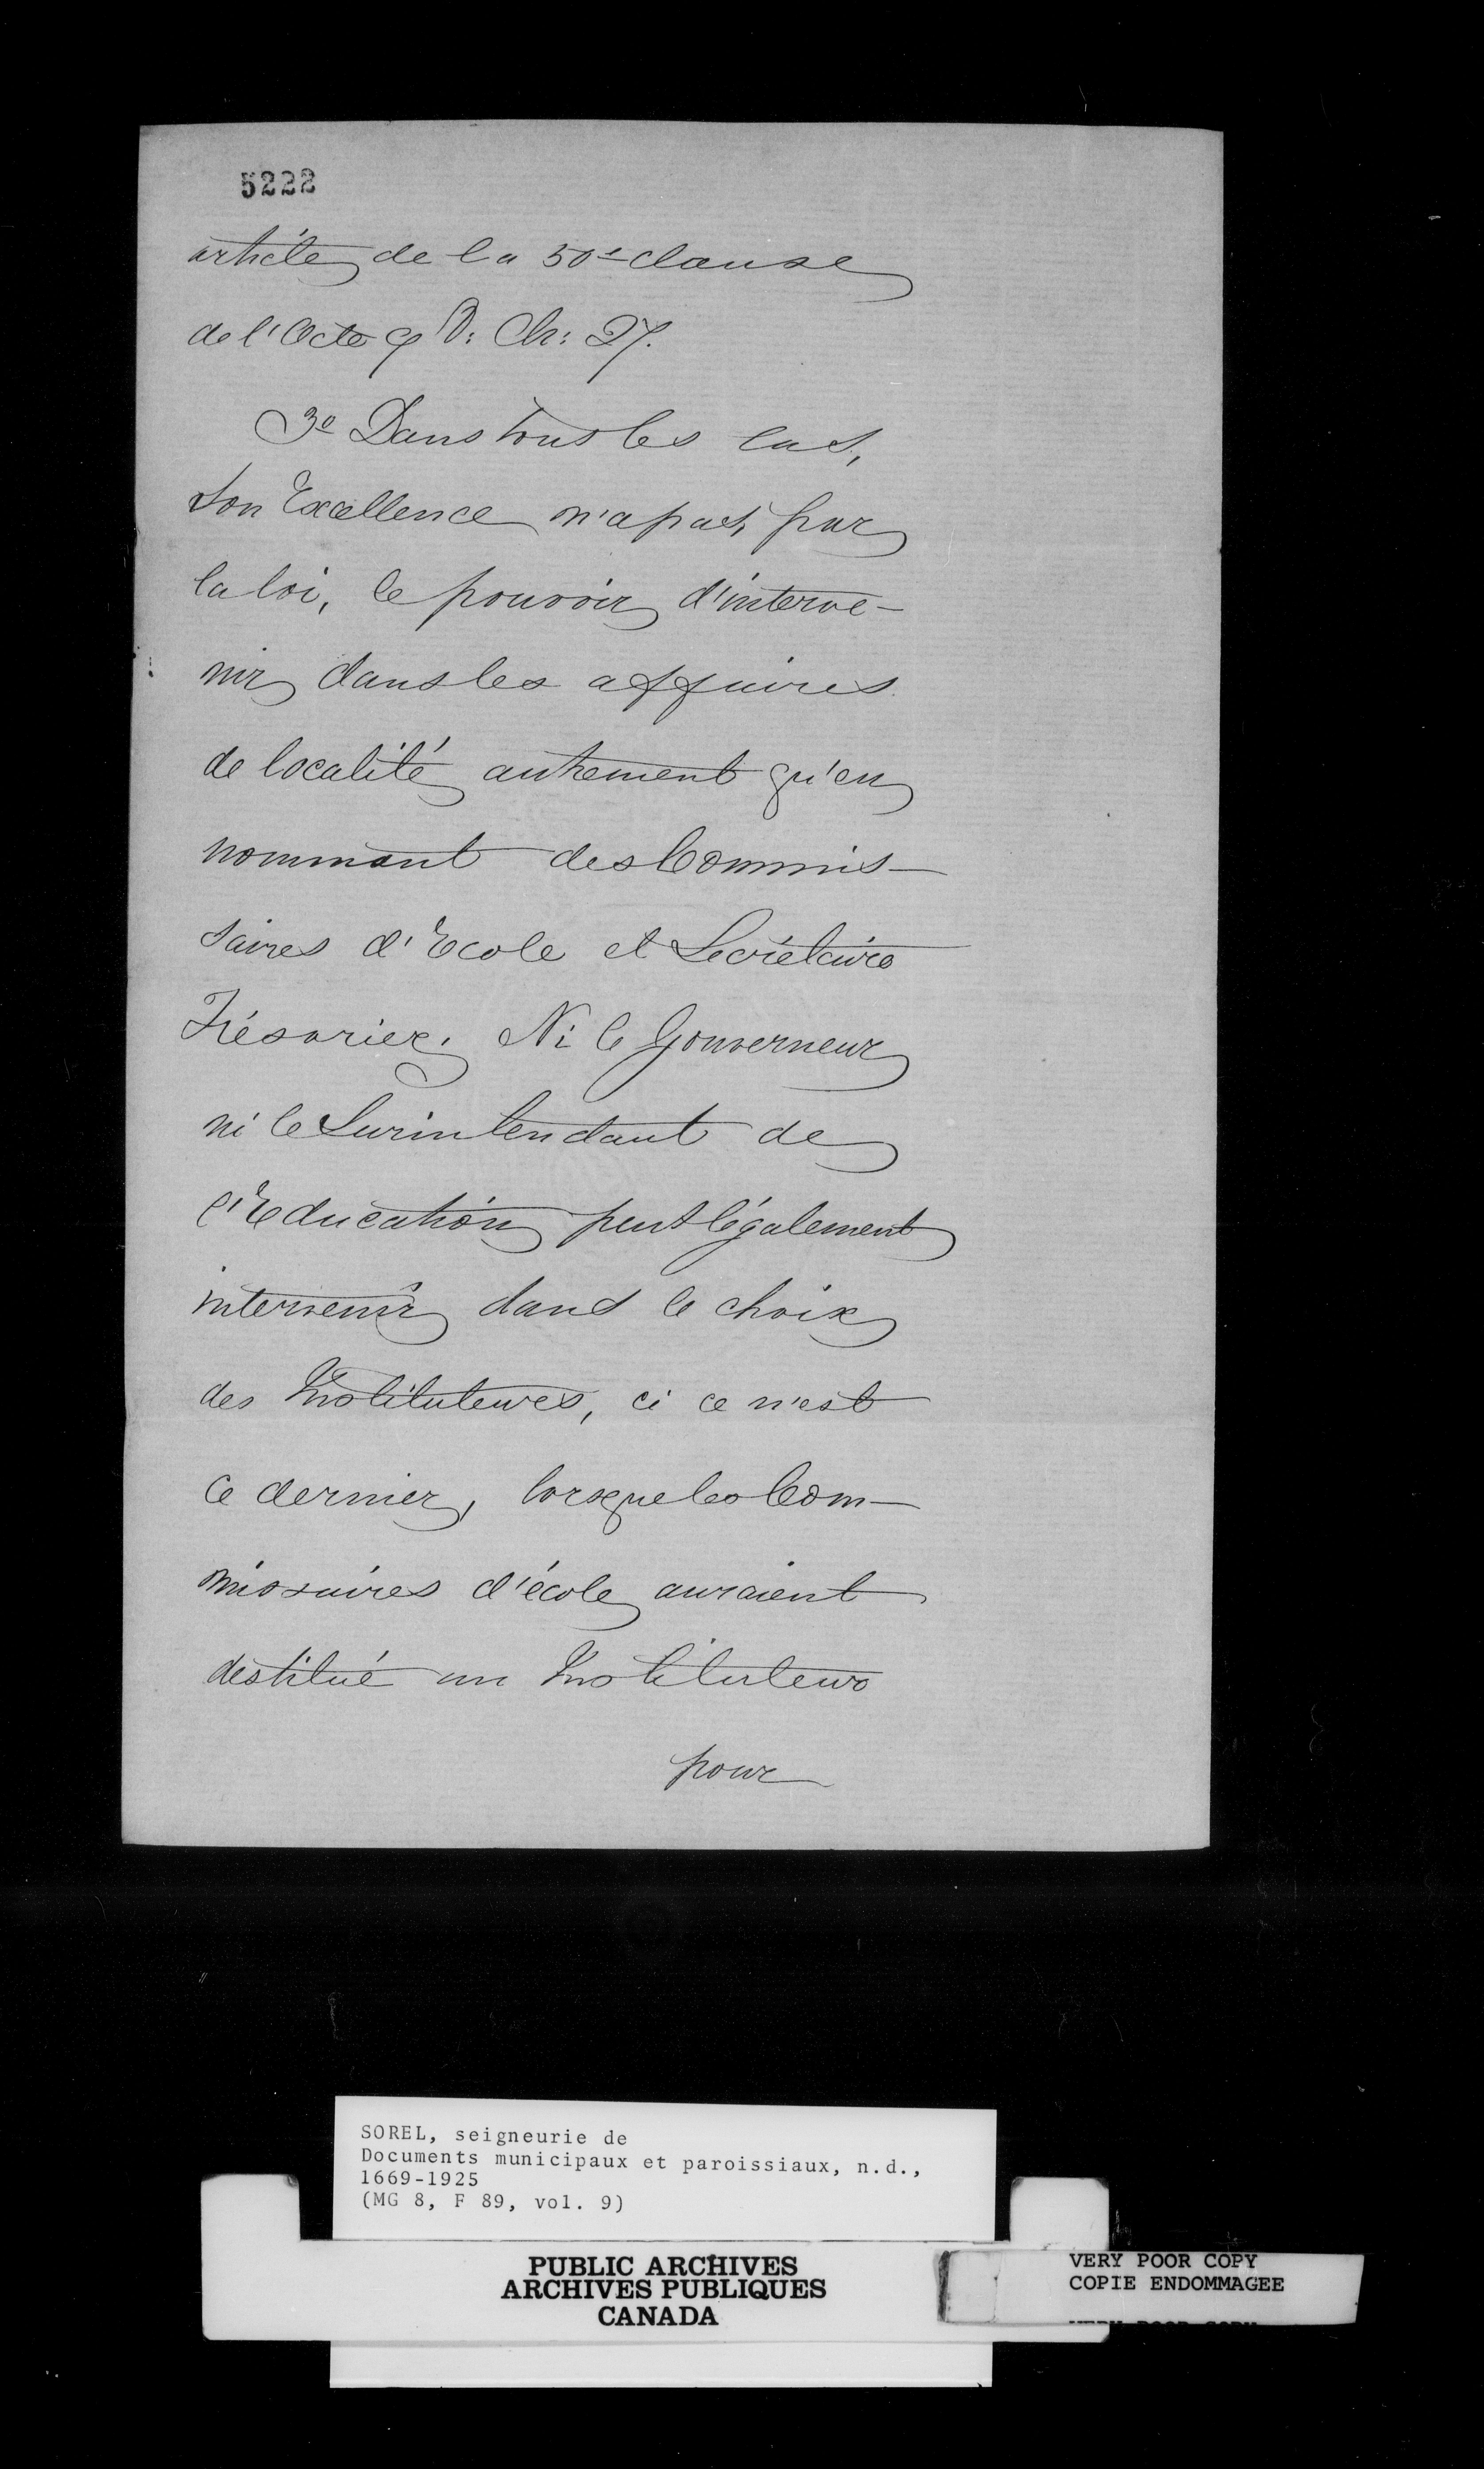 5222
article de la 50e clause
de l'Acte 9 V: Ch: 27.
3o Dans tous les cas,
Son Excellence n'a pas, par
la loi, le pouvoir d'interve-
nir dans les affaires
de localité autrement qu'en
nommant des Commis-
saires d'Ecole et Secrétaire
Trésorier. Ni le Gouverneur
ni le Surintendant de
l'Education peut légalement
intervenir dans le choix
des Instituteurs, ci ce n'est
ce dernier, lorsque les Com-
missaires d'école auraient
destitué un Instituteur
pour
SOREL, seigneurie de
Documents municipaux et paroissiaux, n.d.,
1669-1925
(MG 8, F 89, vol. 9)
PUBLIC ARCHIVES
ARCHIVES PUBLIQUES
CANADA
VERY POOR COPY
COPIE ENDOMMAGEE
VERY POOR COPY